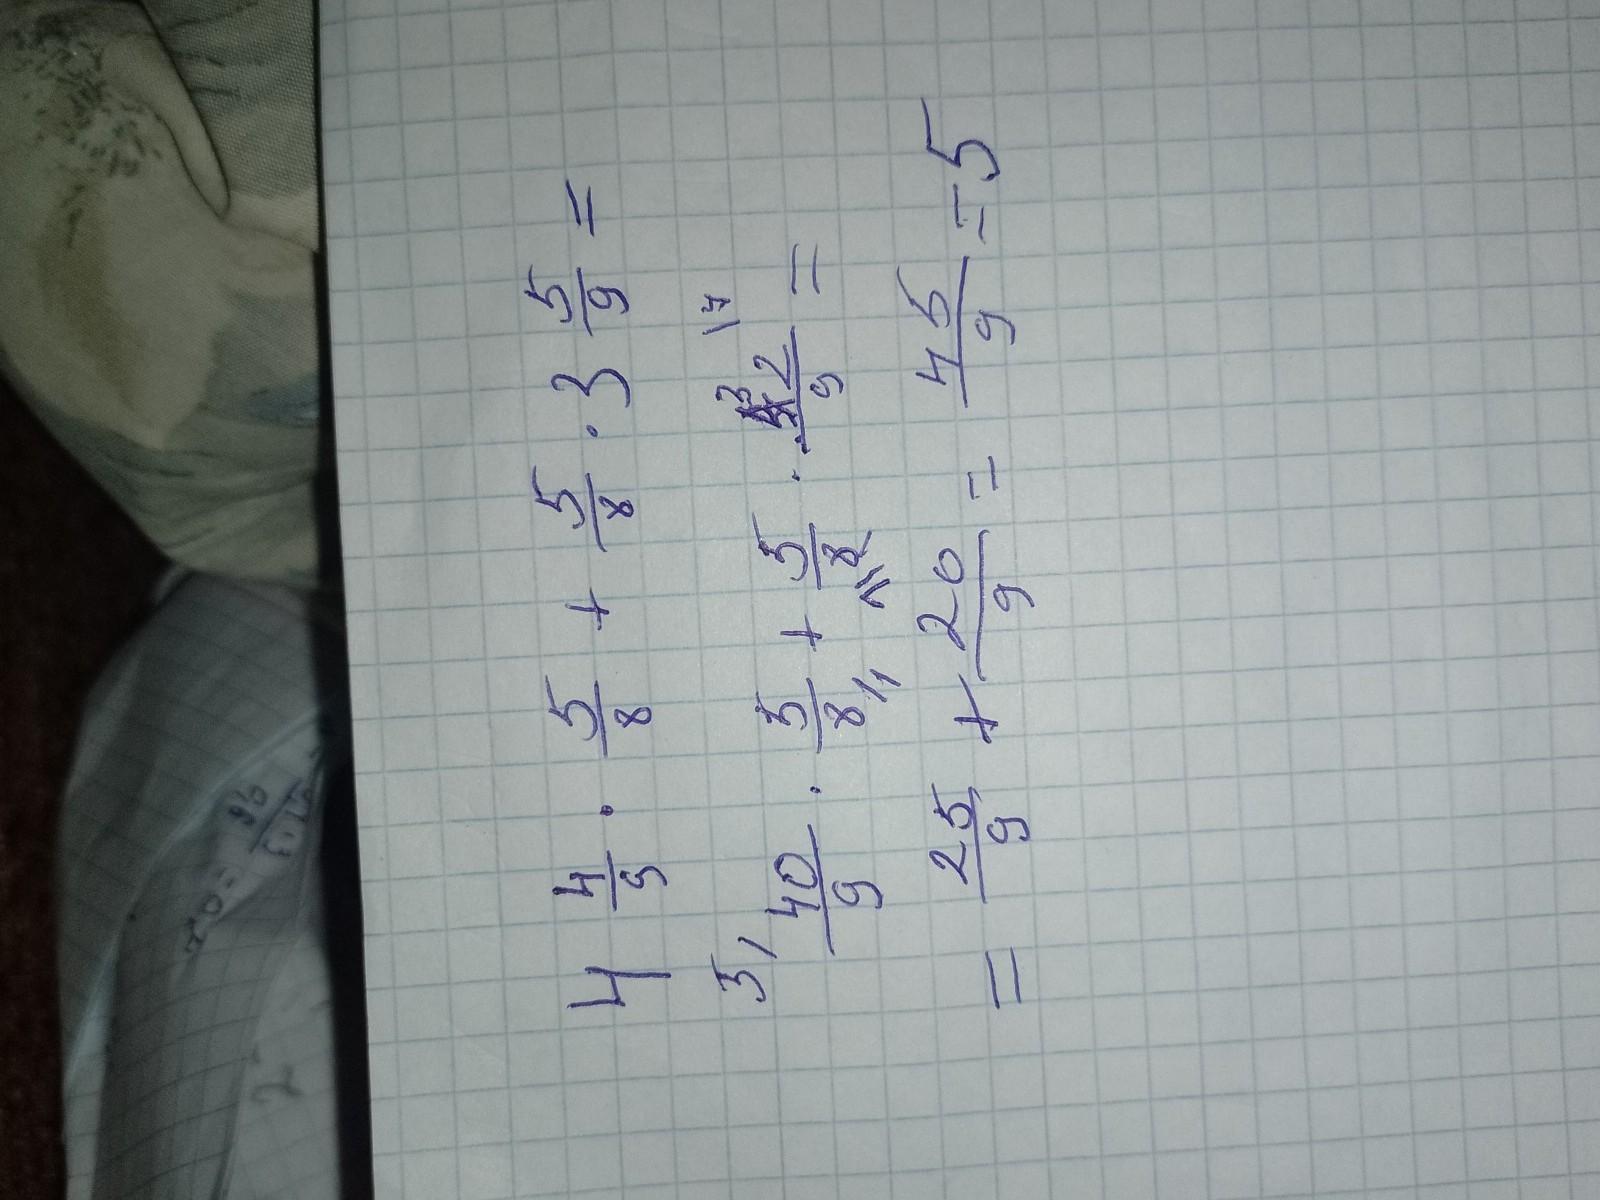 4 4/9 · 5/8 + 5/8 · 3 5/9 =
40/9 · 5/8 + 5/8 · 32/9 =
= 25/9 + 20/9 = 45/9 = 5